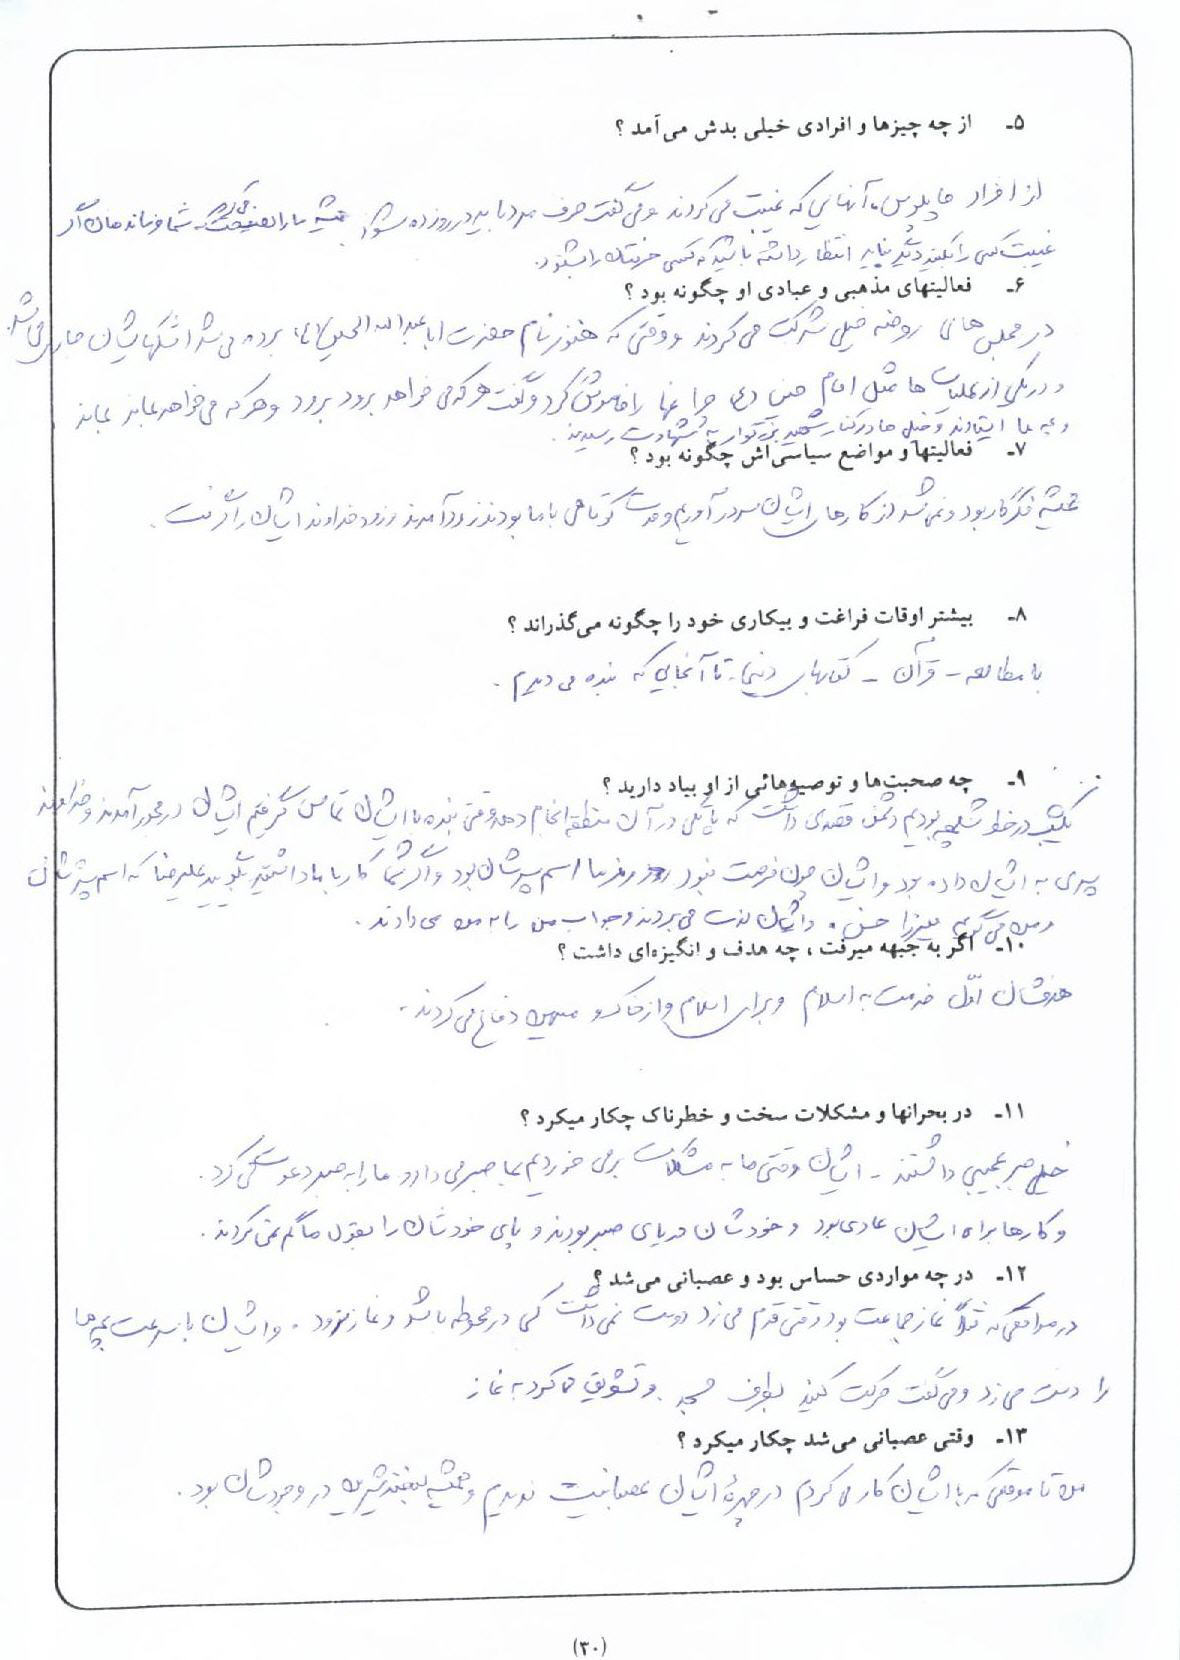 ۵ـ از چه چیزها و افرادی خیلی بدش می‌آمد ؟
از افراد چاپلوس، آنهایی که غیبت می‌کردند و می‌گفت حرف مرد باید در روز زده شود همیشه ما را نصیحت می‌کرد شما فرمانده‌هان اگر
غیبت کسی را بکنید دیگر نباید انتظار داشته باشید که کسی حرفتان را بشنود.
۶ـ فعالیتهای مذهبی و عبادی او چگونه بود ؟
در مجلس‌های روضه خیلی شرکت می‌کردند و وقتی که هنوز نام حضرت ابا عبدالله الحسین (ع) برده می‌شد اشکهایشان جاری می‌شد.
و در یکی از عملیات‌ها مثل امام حسین (ع) چراغها را خاموش کرد و گفت هر که می‌خواهد برود برود و هر که می‌خواهد بماند بماند
و بچه‌ها ایستادند و خیلی‌ها در کنار شهید بزرگوار به شهادت رسیدند.
۷ـ فعالیتها و مواضع سیاسی‌اش چگونه بود ؟
همیشه فکر کار بود و نمی‌شد از کارهای ایشان سر در آوریم و مدت کوتاهی با ما بودند زود آمدند و زود خداوند ایشان را گرفت.
۸ـ بیشتر اوقات فراغت و بیکاری خود را چگونه می‌گذراند ؟
با مطالعه - قرآن - کتابهای دینی - تا آنجایی که بنده می‌دیدم.
۹ـ چه صحبت‌ها و توصیه‌هائی از او بیاد دارید ؟
یکشب در خط شلمچه بودیم دشمن قصدی داشت که پاتکی در آن منطقه انجام دهد وقتی بنده با ایشان تماس گرفتم ایشان در محور آمدند و خداوند
پسری به ایشان داده بود و ایشان چون فرصت نبود رمز ما اسم پسرشان بود و اگر شما کار با ما داشتید بگویید علیرضا که اسم پسرشان
و من می‌گویم میرزا حسن. و ایشان لذت می‌بردند و جواب من را به من می‌دادند.
۱۰ـ اگر به جبهه میرفت ، چه هدف و انگیزه‌ای داشت ؟
هدفشان اوّل خدمت به اسلام و برای اسلام و از خاک و میهن دفاع می‌کردند.
۱۱ـ در بحرانها و مشکلات سخت و خطرناک چکار میکرد ؟
خیلی صبر عجیبی داشتند - ایشان وقتی ما به مشکلات بر می‌خوردیم بما صبر می‌داد و ما را به صبر دعوت می‌کرد.
و کارها برای ایشان عادی بود و خودشان دریای صبر بودند و پای خودشان را بقول ما گم نمی‌کردند.
۱۲ـ در چه مواردی حساس بود و عصبانی می‌شد ؟
در مواقعی که مثلاً نماز جماعت بود وقتی قدم می‌زد دوست نمی‌داشت کسی در محوطه باشد و نماز نرود. و ایشان با سرعت بچه‌ها
را دست می‌زد و می‌گفت حرکت کنید بطرف مسجد و تشویق می‌کرد به نماز
۱۳ـ وقتی عصبانی می‌شد چکار میکرد ؟
من تا موقعی که با ایشان کار می‌کردم در چهرهٔ ایشان عصبانیت ندیدم و همیشه لبخند شیرین در وجودشان بود.
(۳۰)